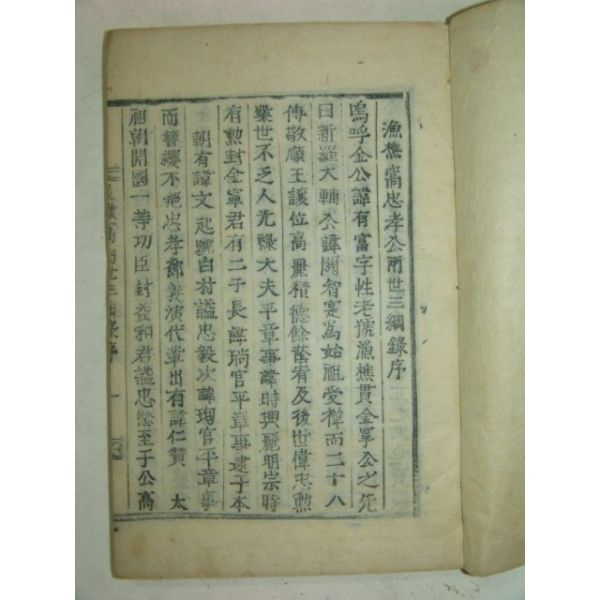 漁樵窩忠孝公兩世三綱錄序
嗚呼金公諱有富字性老號漁樵貫金寧公之先
曰新羅大輔公諱閼智寔爲始祖受禪而二十八
傳敬順王讓位高麗積德餘蔭宥及後世偉忠勲
業世不乏人光祿大夫平章事諱時興麗明宗時
有勲封金寧君有二子長諱瑞官平章事逮于本
朝有諱文起號白村謚忠毅次諱珣官平章事
而簪纓不絶忠孝節義演代輩出有諱仁贊 太
祖朝開國一等功臣封益和君謚忠愍至于公高